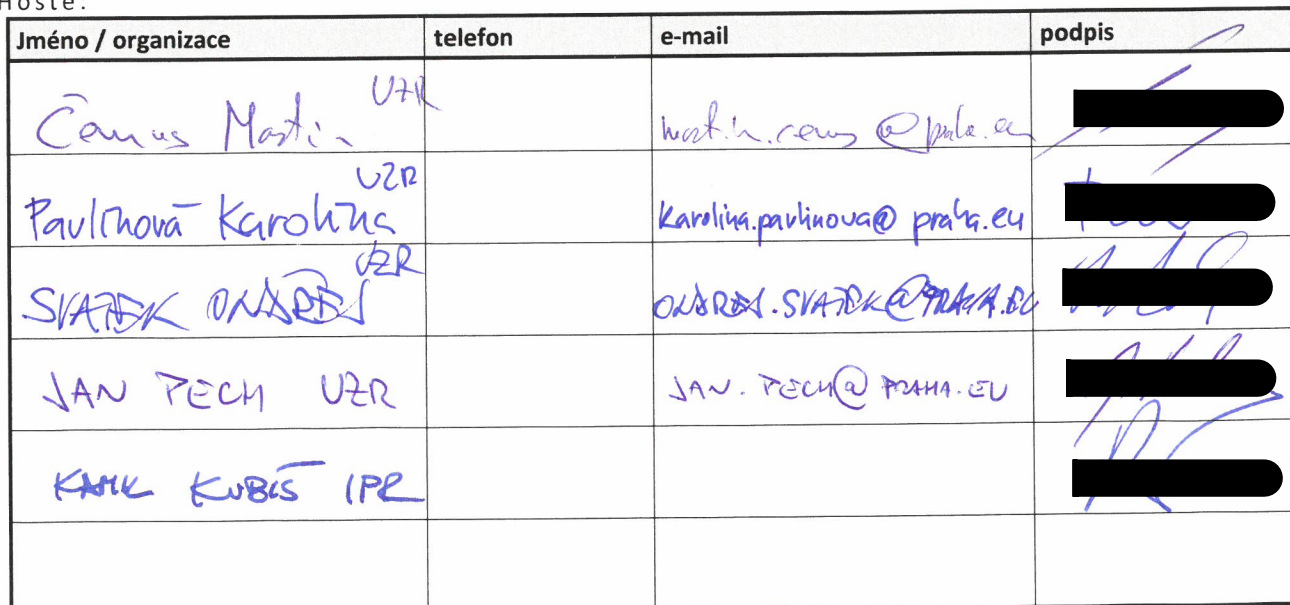 Hosté:
Jméno / organizace telefon e-mail podpis
Čemus Martin UZR martin.cemus@praha.eu
Pavlínová Karolína UZR karolina.pavlinova@praha.eu
SVATEK ONDŘEJ UZR ONDREJ.SVATEK@PRAHA.EU
JAN PECH UZR JAN.PECH@PRAHA.EU
KUBIŠ IPR